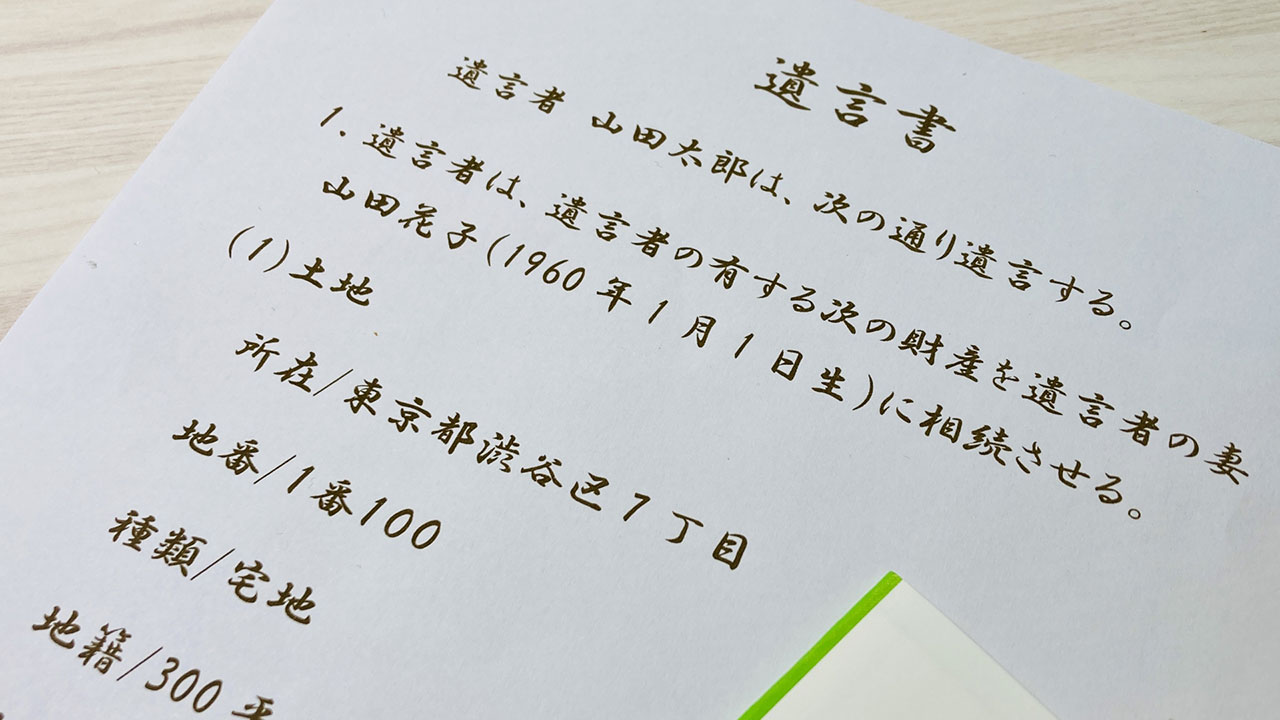 遺言書
遺言者 山田太郎は、次の通り遺言する。
1. 遺言者は、遺言者の有する次の財産を遺言者の妻
山田花子(1960 年 1 月 1 日生)に相続させる。
(1)土地
所在/東京都渋谷区7丁目
地番/1番100
種類/宅地
地籍/300 平